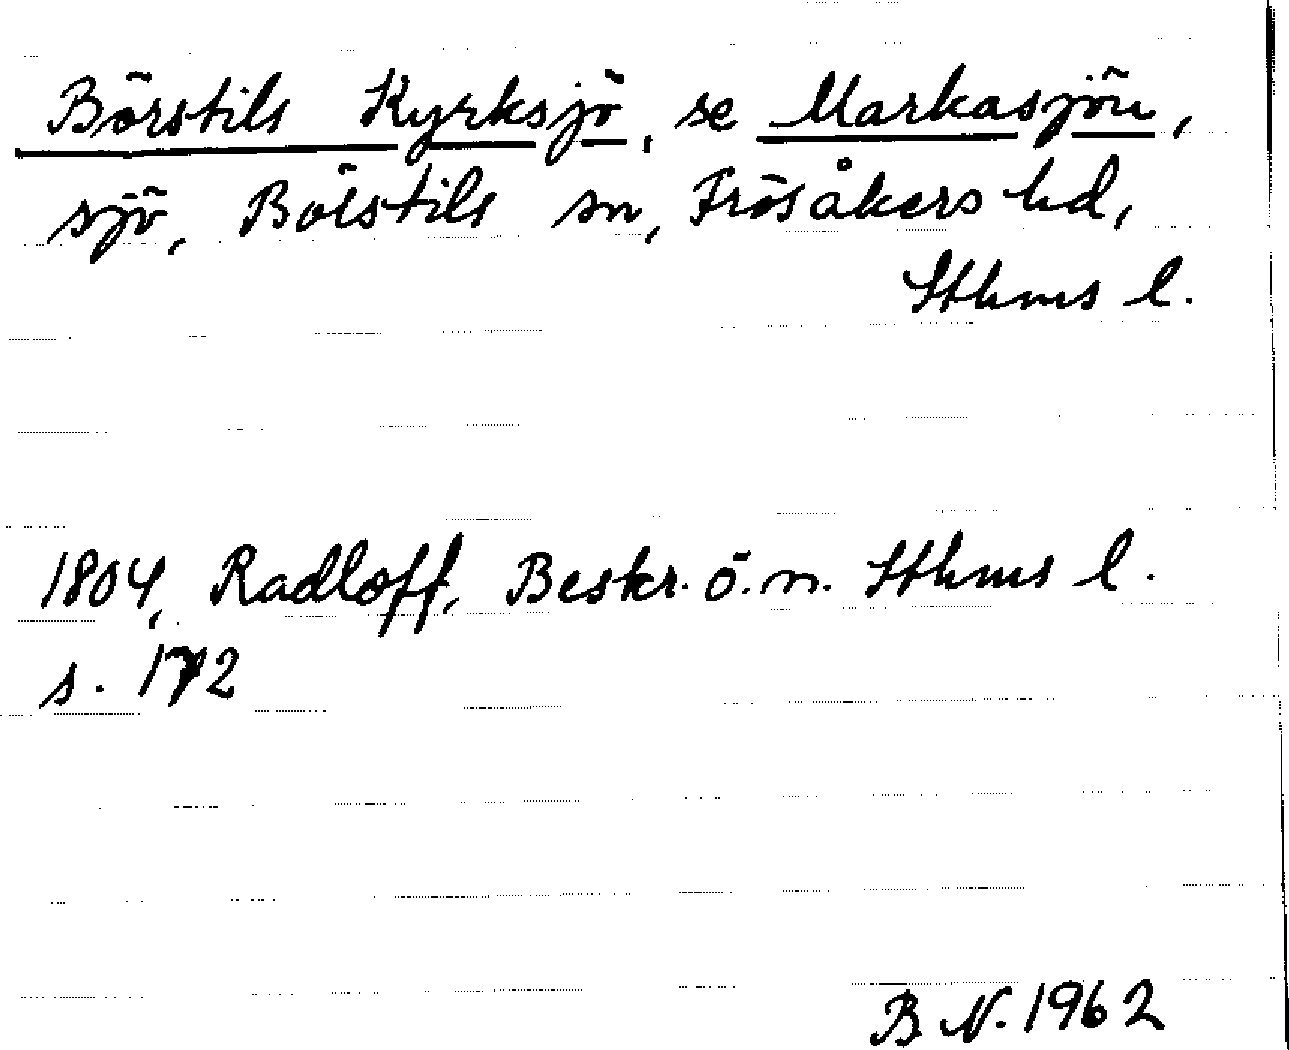 Börstils Kyrksjö, se Markasjön,
sjö, Börstils sn, Frösåkers hd,
Sthms l.
1804, Radloff, Beskr. ö. n. Sthms l.
s. 172
B.N. 1962